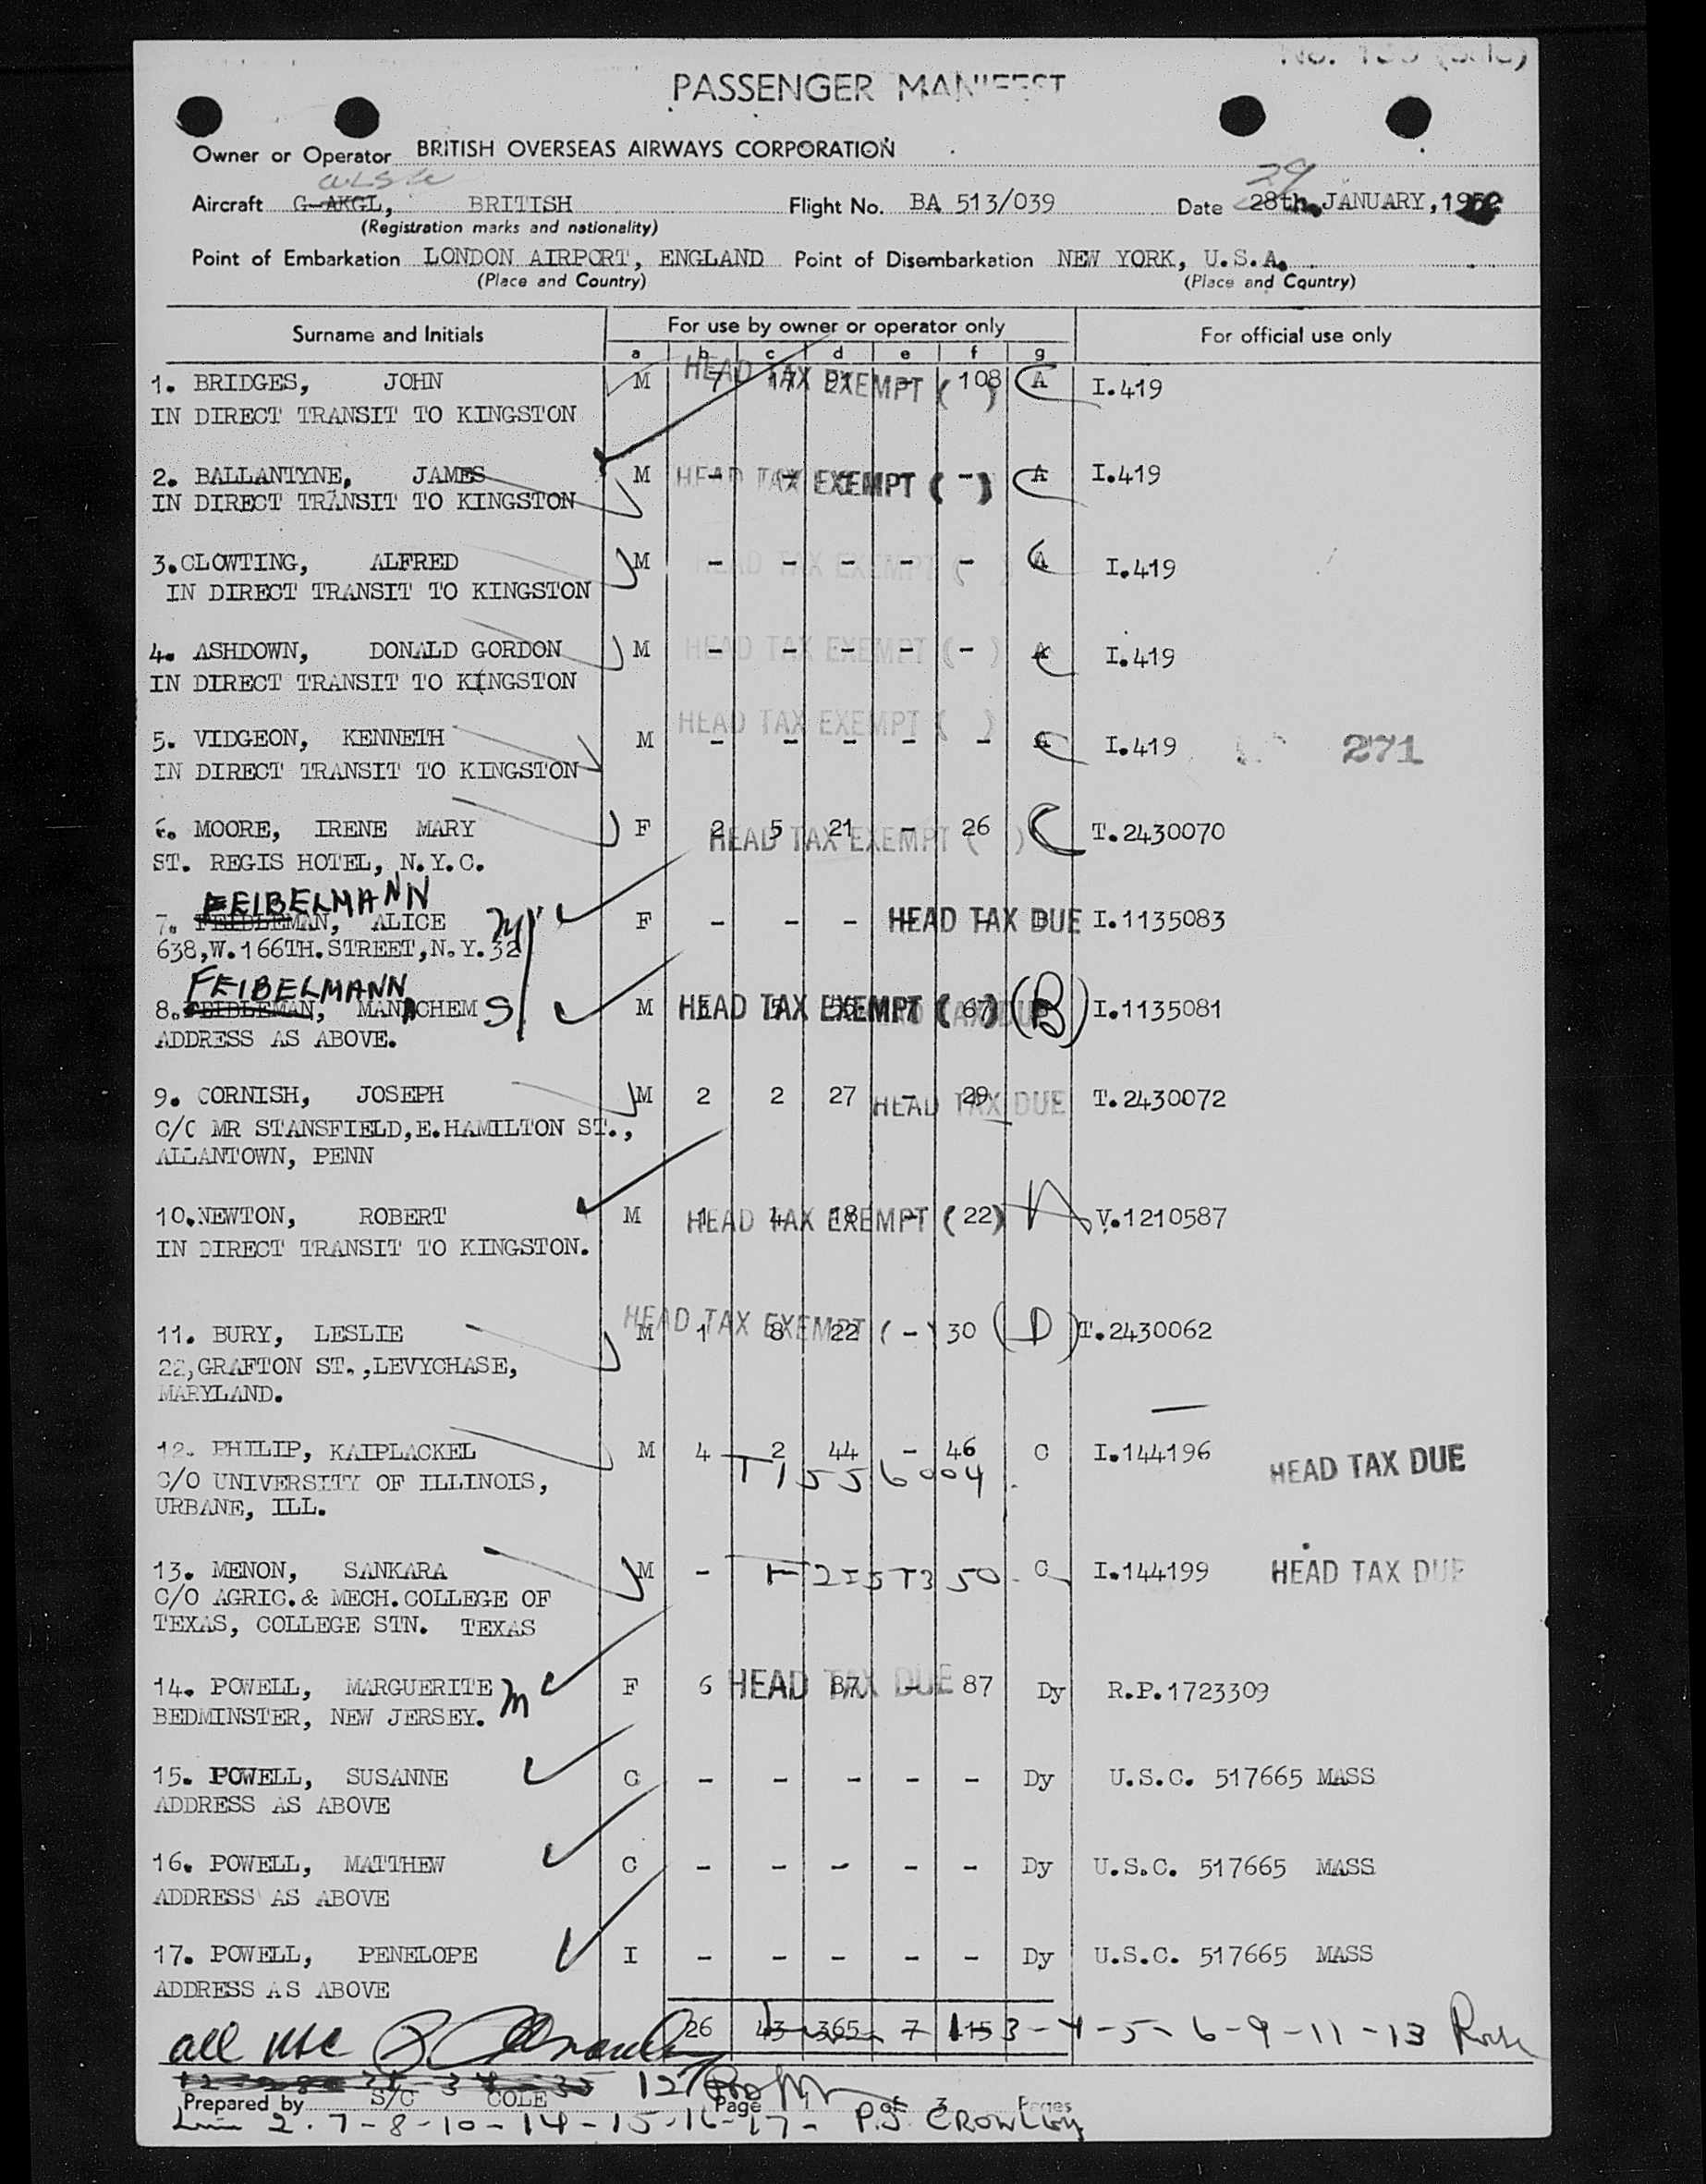 PASSENGER MANIFEST
Owner or Operator BRITISH OVERSEAS AIRWAYS CORPORATION
29
Aircraft G-AKGL, BRITISH Flight No. BA 513/039 Date 28th JANUARY, 195
(Registration marks and nationality)
Point of Embarkation LONDON AIRPORT, ENGLAND Point of Disembarkation NEW YORK, U.S.A.
(Place and Country) (Place and Country)
Surname and Initials For use by owner or operator only For official use only
a b c d e f g
1. BRIDGES, JOHN M 7 17 91 - 108 A I.419
HEAD TAX EXEMPT ( )
IN DIRECT TRANSIT TO KINGSTON
2. BALLANTYNE, JAMES M HEAD TAX EXEMPT ( - ) A I.419
IN DIRECT TRANSIT TO KINGSTON
3. CLOWTING, ALFRED M - - - - - A I.419
HEAD TAX EXEMPT ( )
IN DIRECT TRANSIT TO KINGSTON
4. ASHDOWN, DONALD GORDON M - - - - - A I.419
HEAD TAX EXEMPT ( )
IN DIRECT TRANSIT TO KINGSTON
HEAD TAX EXEMPT ( )
5. VIDGEON, KENNETH M - - - - - A I.419 271
IN DIRECT TRANSIT TO KINGSTON
6. MOORE, IRENE MARY F 2 5 21 - 26 T.2430070
HEAD TAX EXEMPT ( )
ST. REGIS HOTEL, N.Y.C.
FEIBELMANN
7. FEIDLEMAN, ALICE F - - - HEAD TAX DUE I.1135083
638,W.166TH.STREET,N.Y.32 M
FEIBELMANN
8. FEIDLEMAN, MANACHEM S M HEAD TAX EXEMPT ( 67 ) (B) I.1135081
ADDRESS AS ABOVE.
9. CORNISH, JOSEPH M 2 2 27 - 29 T.2430072
HEAD TAX DUE
C/O MR STANSFIELD,E.HAMILTON ST.,
ALLANTOWN, PENN
10. NEWTON, ROBERT M 1 4 18 - 22 V.1210587
HEAD TAX EXEMPT ( )
IN DIRECT TRANSIT TO KINGSTON.
HEAD TAX EXEMPT ( - )
11. BURY, LESLIE M 1 8 22 30 (D) T.2430062
22,GRAFTON ST.,LEVYCHASE,
MARYLAND.
12. PHILIP, KAIPLACKEL M 4 2 44 - 46 C I.144196 HEAD TAX DUE
T 1556004
C/O UNIVERSITY OF ILLINOIS,
URBANE, ILL.
13. MENON, SANKARA M - C I.144199 HEAD TAX DUE
C/O AGRIC.& MECH.COLLEGE OF
TEXAS, COLLEGE STN. TEXAS
14. POWELL, MARGUERITE M F 6 87 - 87 Dy R.P.1723309
HEAD TAX DUE
BEDMINSTER, NEW JERSEY.
15. POWELL, SUSANNE C - - - - - Dy U.S.C. 517665 MASS
ADDRESS AS ABOVE
16. POWELL, MATTHEW C - - - - - Dy U.S.C. 517665 MASS
ADDRESS AS ABOVE
17. POWELL, PENELOPE I - - - - - Dy U.S.C. 517665 MASS
ADDRESS AS ABOVE
26 43 365 7 415 3-4-5-6-9-11-13
all
12
Prepared by S/C COLE Page of 3 Pages
2.7-8-10-14-15-16-17- P.J. CROWLEY